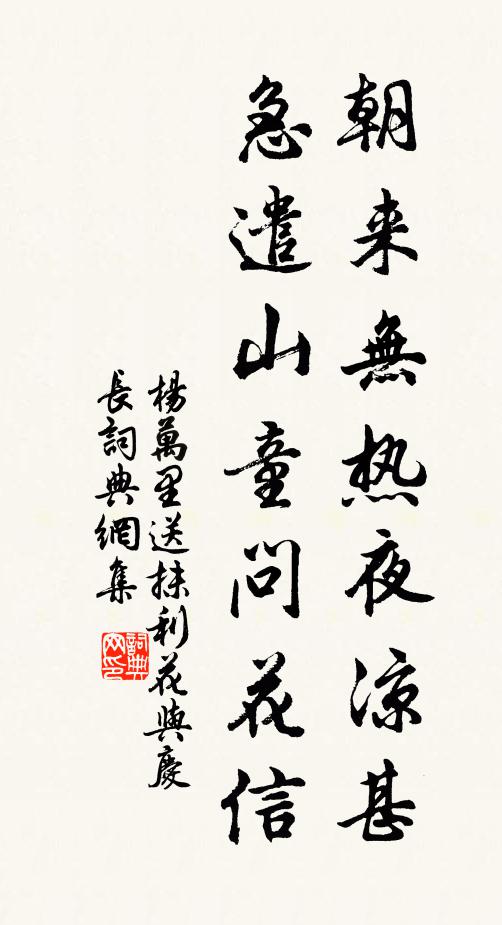 朝来無热夜凉甚
急遣山童問花信
楊萬里送抹利花與慶
長詞典網集
詞典网印